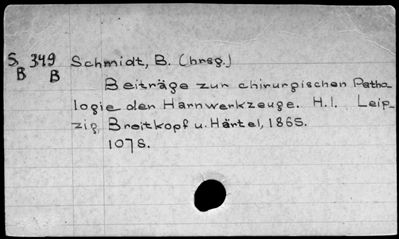 S. 349 Schmidt, B. (hrsg.)
B B
Beiträge zur chirurgischen Patho
logie der Harnwerkzeuge. H.1. Leip-
zig, Breitkopf u. Härtel, 1865.
107 S.